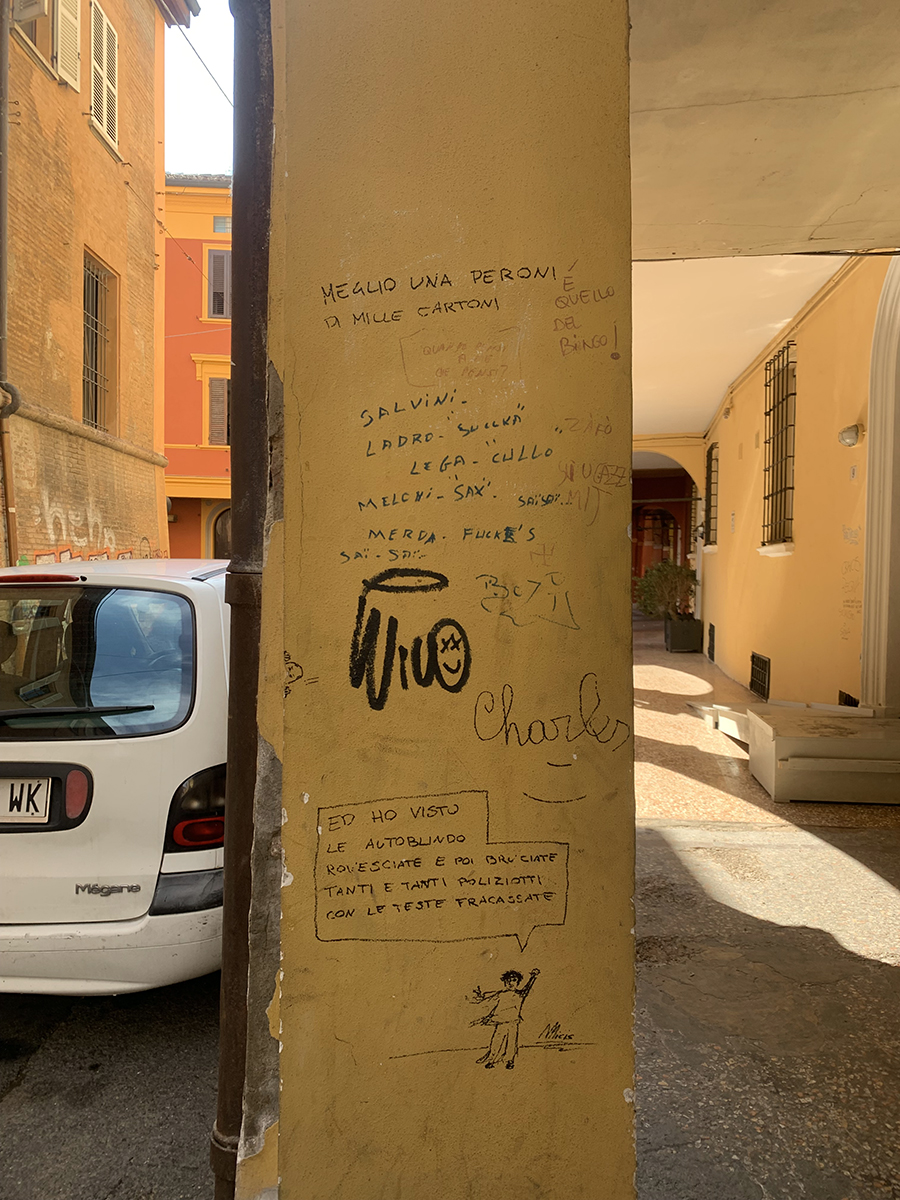 MEGLIO UNA PERONI
DI MILLE CARTONI
É
QUELLO
DEL
BiNGO!
SALViNi-
LADRO-"SUCCKA"
LEGA-"CULLO
MELCHi-"SAX".
MERDA. FUCK'S
SAÏ-SAÏ
Nico
Charles
ED HO VISTO
LE AUTOBLINDO
ROVESCIATE E POI BRUCIATE
TANTI E TANTI POLIZIOTTI
CON LE TESTE FRACASSATE
WK
Mégane